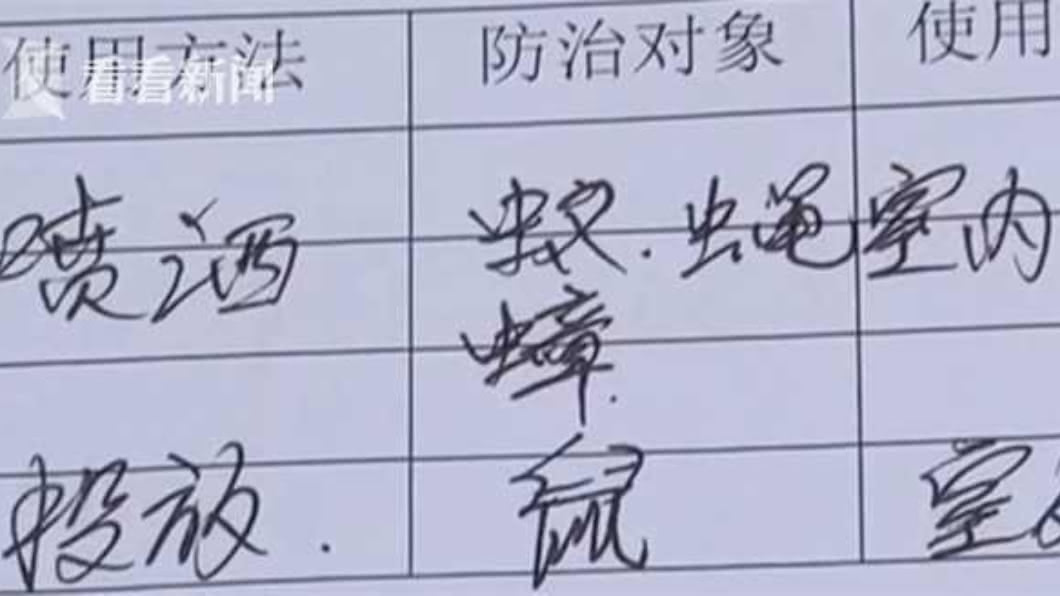 使用方法 防治对象 使用
看看新闻
喷洒 蚊.蝇 室内
蟑.
投放. 鼠 室